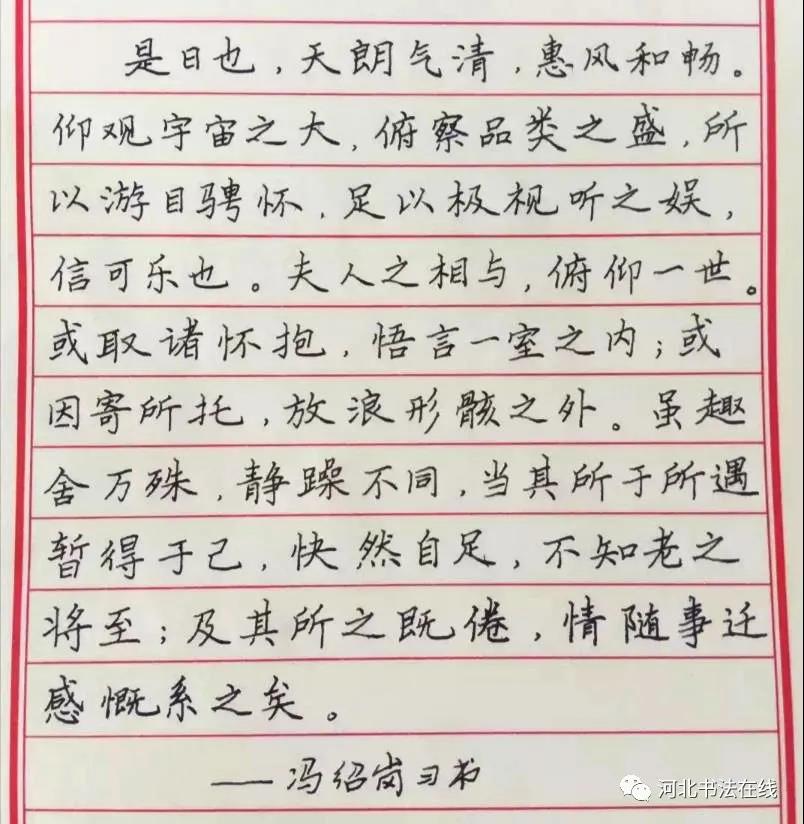 是日也，天朗气清，惠风和畅。
仰观宇宙之大，俯察品类之盛，所
以游目骋怀，足以极视听之娱，
信可乐也。夫人之相与，俯仰一世。
或取诸怀抱，悟言一室之内；或
因寄所托，放浪形骸之外。虽趣
舍万殊，静躁不同，当其所于所遇
暂得于己，快然自足，不知老之
将至；及其所之既倦，情随事迁
感慨系之矣。
——冯绍岗习书
河北书法在线